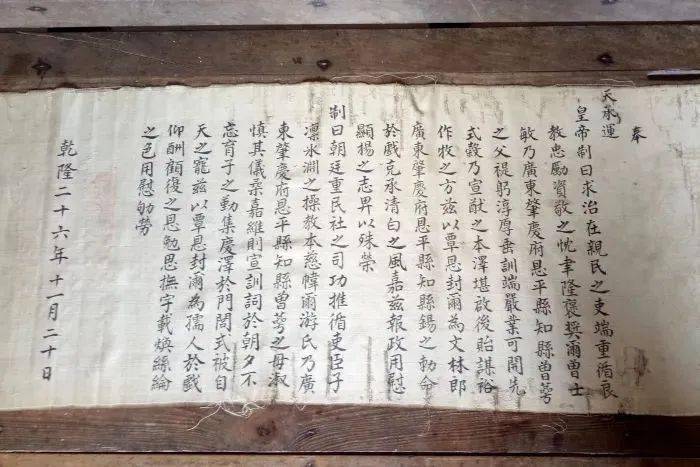 奉
天承運
皇帝制曰求治在親民之吏端重循良
教忠勵資敬之忱聿隆褒奬爾曾士
敏乃廣東肇慶府恩平縣知縣曾萼
之父禔躬淳厚垂訓端嚴業可開先
式穀乃宣猷之本澤堪啟後貽謀裕
作牧之方茲以覃恩封爾為文林郎
廣東肇慶府恩平縣知縣錫之勅命
於戲克承清白之風嘉茲報政用慰
顯揚之志畀以殊榮
制曰朝廷重民社之司功推循吏臣子
凜冰淵之操教本慈幃爾游氏乃廣
東肇慶府恩平縣知縣曾萼之母淑
慎其儀柔嘉維則宣訓詞於朝夕不
忘育子之勤集慶澤於門閭式被自
天之寵茲以覃恩封爾為孺人於戲
仰酬顧復之恩勉思撫字載煥絲綸
之色用慰劬勞
乾隆二十六年十一月二十日